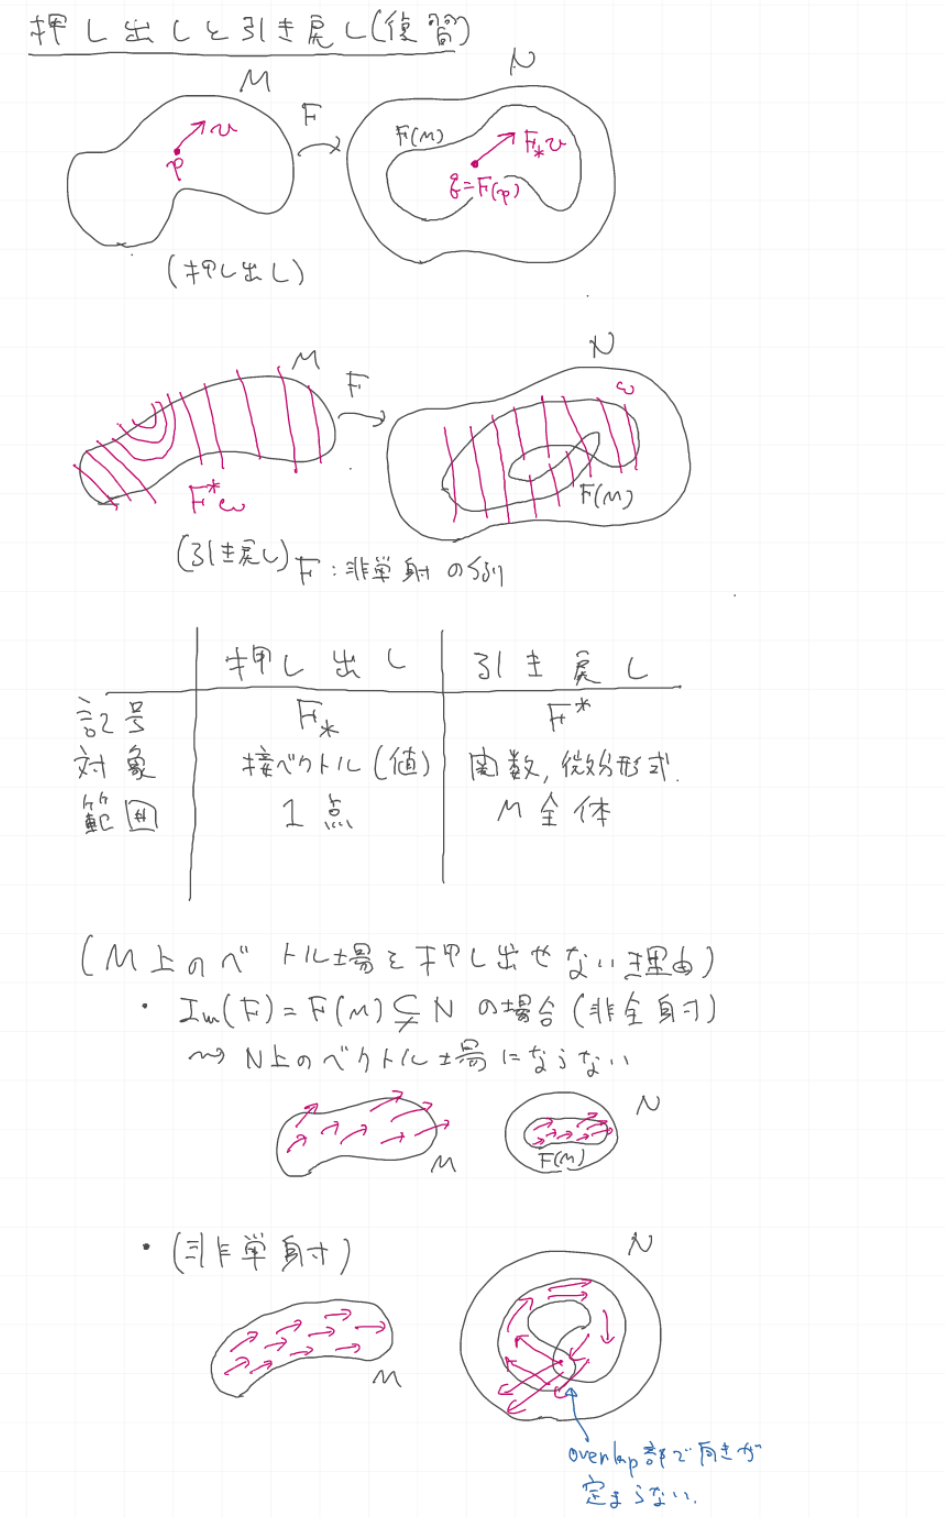 押し出しと引き戻し(復習)
M
N
F
F(M)
v
p
F_*v
q=F(p)
(押し出し)
M
N
F
ω
F^*ω
F(M)
(引き戻し)
F:非単射の例
押し出し 引き戻し
記号 F_* F^*
対象 接ベクトル(値) 関数, 微分形式.
範囲 1点 M全体
(M上のベ トル場を押し出せない理由)
・Im(F)=F(M)⊊N の場合(非全射)
⇝ N上のベクトル場にならない
N
M
F(M)
・(非単射)
N
M
overlap部で向きが
定まらない.